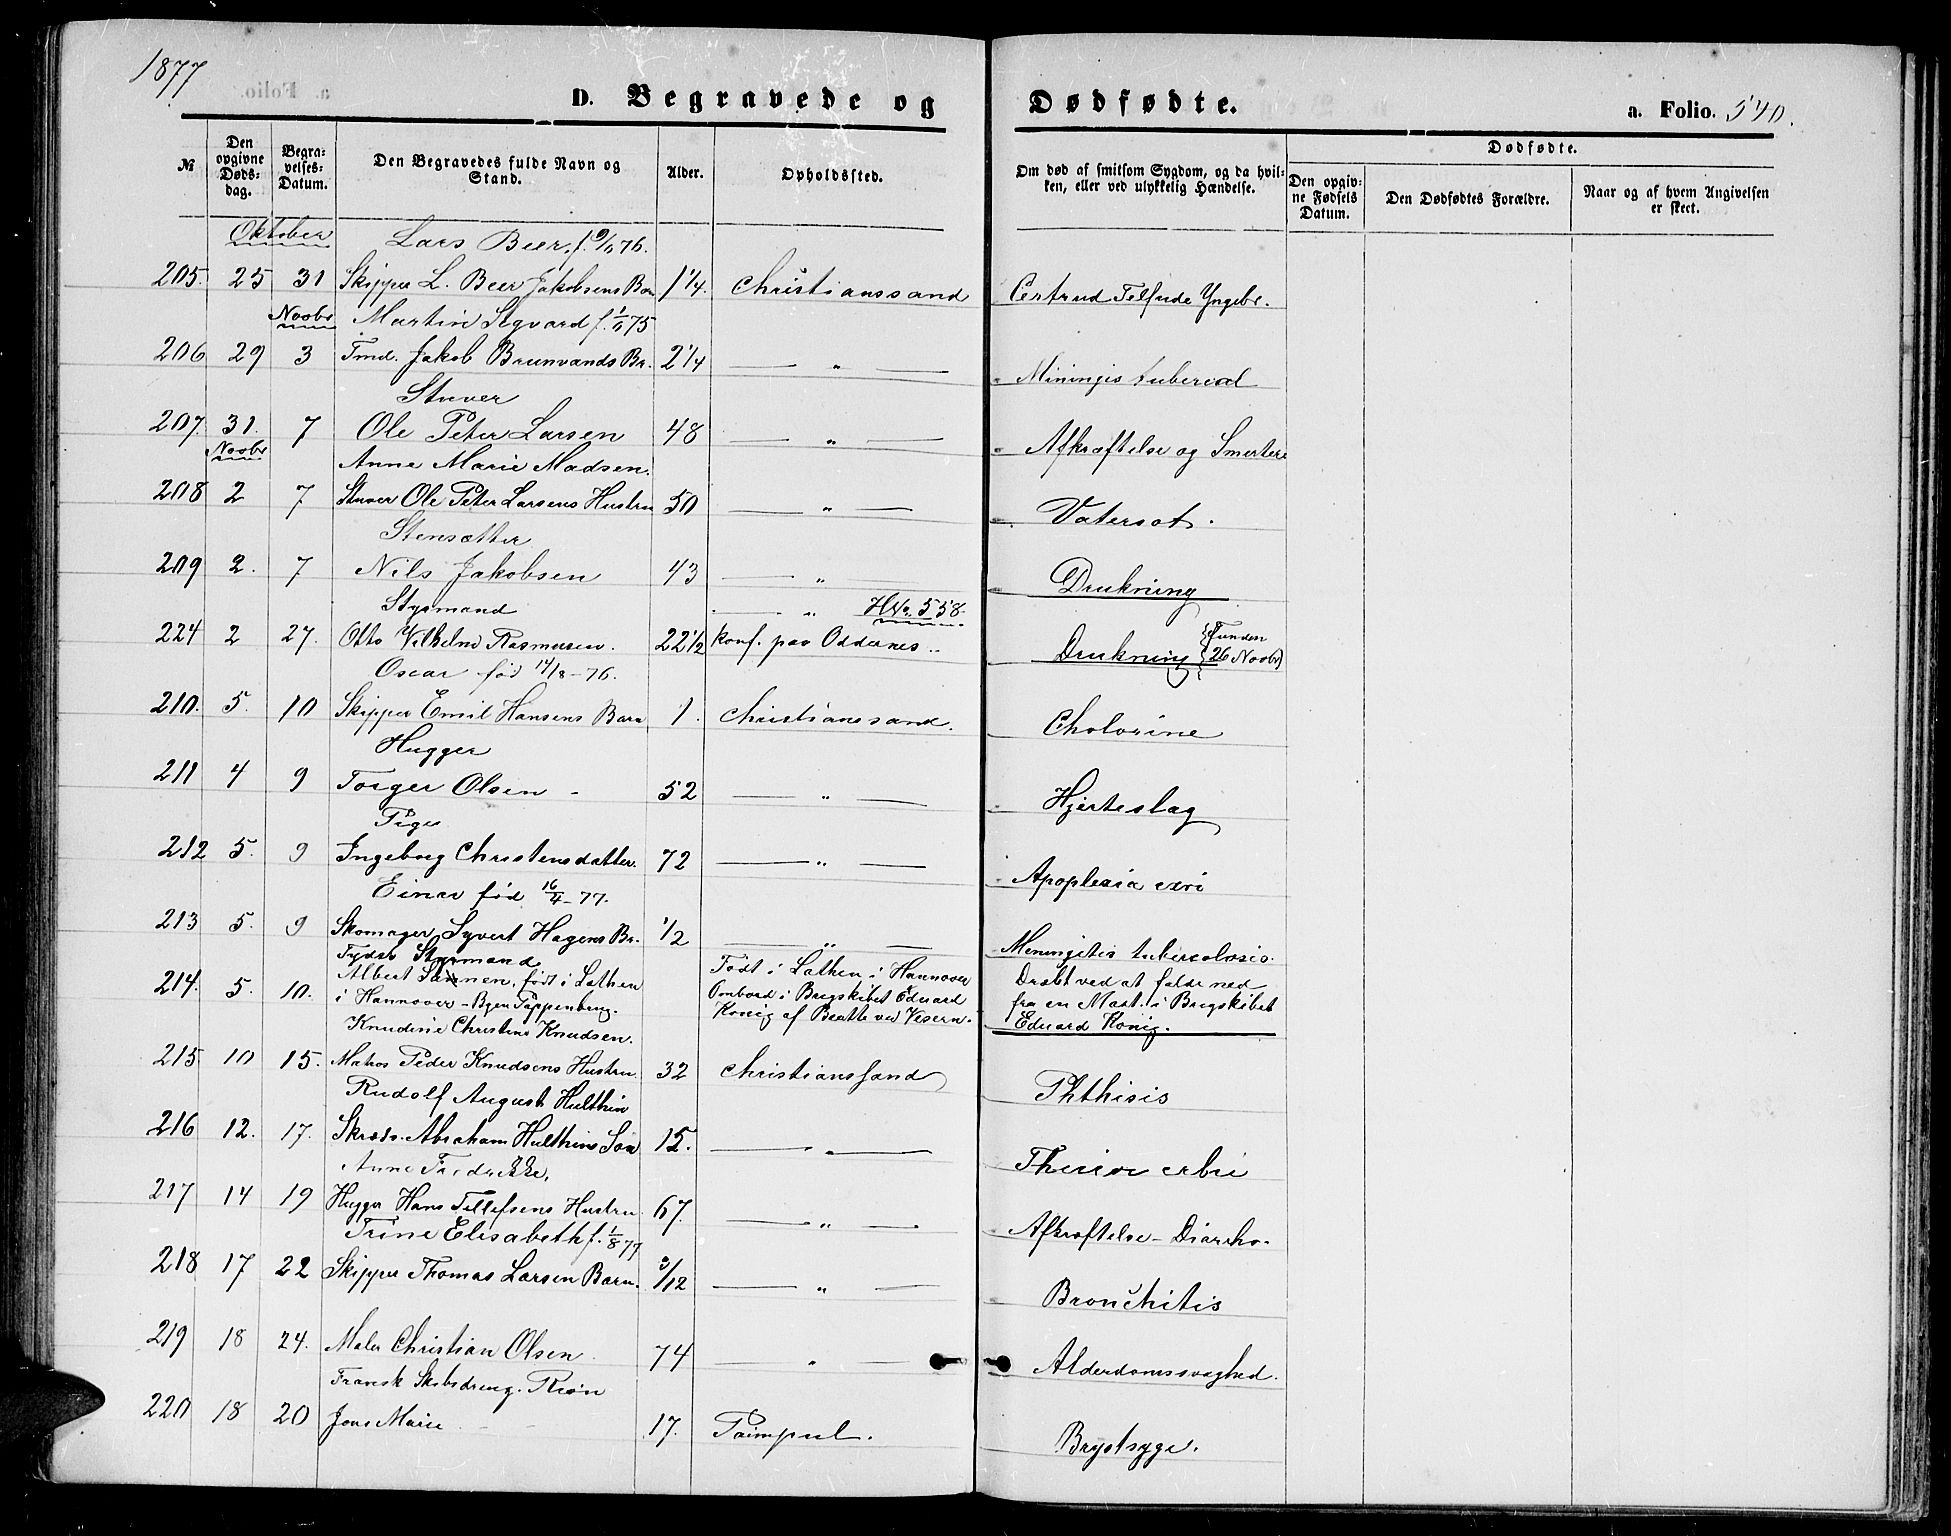 1877
D. Begravede og Dødfødte.
a. Folio. 540.
№
Den opgivne Døds-dag.
Begra-velses-Datum.
Den Begravedes fulde Navn og Stand.
Alder.
Opholdssted.
Om død af smitsom Sygdom, og da hvil-ken, eller ved ulykkelig Hændelse.
Dødfødte.
Den opgiv-ne Fødsels Datum.
Den Dødfødtes Forældre.
Naar og af hvem Angivelsen er skeet.
Oktober Lars Beer, f. 9/11 76.
205. 25 31 Skipper L. Beer Jakobsens Barn 1 1/4. Christianssand
Novbr Martin Sigvard f. 1/11 75
206 29 3 Tmd. Jakob Brunvands Br. 2 1/4 — " — Miningis tubercul
Stuver
207. 31. 7 Ole Peter Larsen 48 — " — Afkræftelse og Smerter
Novbr Anne Marie Madsen.
208 2 7 Stuver Ole Peter Larsens Hustru 50 — " — Vatersot.
Stensætter
209 2. 7 Nils Jakobsen 43 — " Drukning
Styrmand — " HNo. 558.
224 2 27. Otto Vilhelm Rasmussen. 22 1/2 konf. paa Oddernes.. Drukning {Funden 26 Novbr}
Oscar fød 14/8 - 76.
210. 5. 10 Skipper Emil Hansens Barn 1. Christianssand. Cholorine
Hugger
211 4 9 Torger Olsen - 52 — " — Hjerteslag
Pige
212 5. 9 Ingeborg Christensdatter. 72 — " — Apoplexia
Einar fød 16/4 - 77.
213 5. 9 Skomager Syvert Hagens Br. 1/2 — " — Meningitis tuberculosis.
Tydsk Styrmand
214. 5. 10. Albert født i Lathen
i Hannover - Byen Pappenburg.
Født i Lathen i Hannover
Ombord i Brigskibet Eduard
König af Beatte ved Vesern.
Dræbt ved at falde ned
fra en Mast i Brigskibet
Eduard König.
Knudine Christine Knudsen.
215 10 15. Matros Peder Knudsens Hustru 32 Christianssand Phthisis
Rudolf August Hulthin
216 12. 17. Skræd. Abraham Hulthins Søn 15. — " —
Anne Fredrikke,
217 14 19 Hugger Hans Tellefsens Hustru 67. — " — Afkræftelse - Diarrho.
Trine Elisabeth f. 1/8 77
218 17 22 Skipper Thomas Larsen Barn. 3/12 — " — Bronchitis
219 18 24. Maler Christian Olsen 74 — " — Alderdomssvaghed.
Fransk Skibsdreng. Rion
220 18 20 Jons Marie 17. Paimpul. Brystsyge.